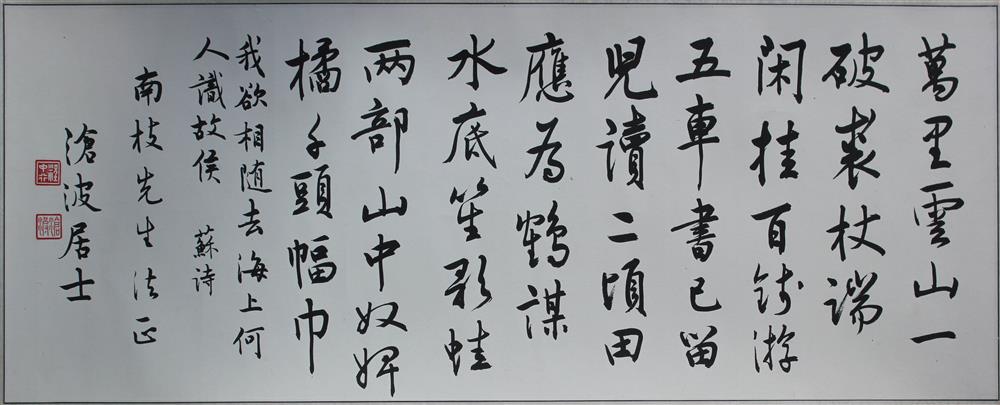 萬里雲山一
破裘杖端
闲挂百銭游
五車書已留
児讀二頃田
應为鶴謀
水底笙歌蛙
两部山中奴婢
橘千頭幅巾
我欲相随去海上何
人識故侯 蘇诗
南枝先生法正
滄波居士